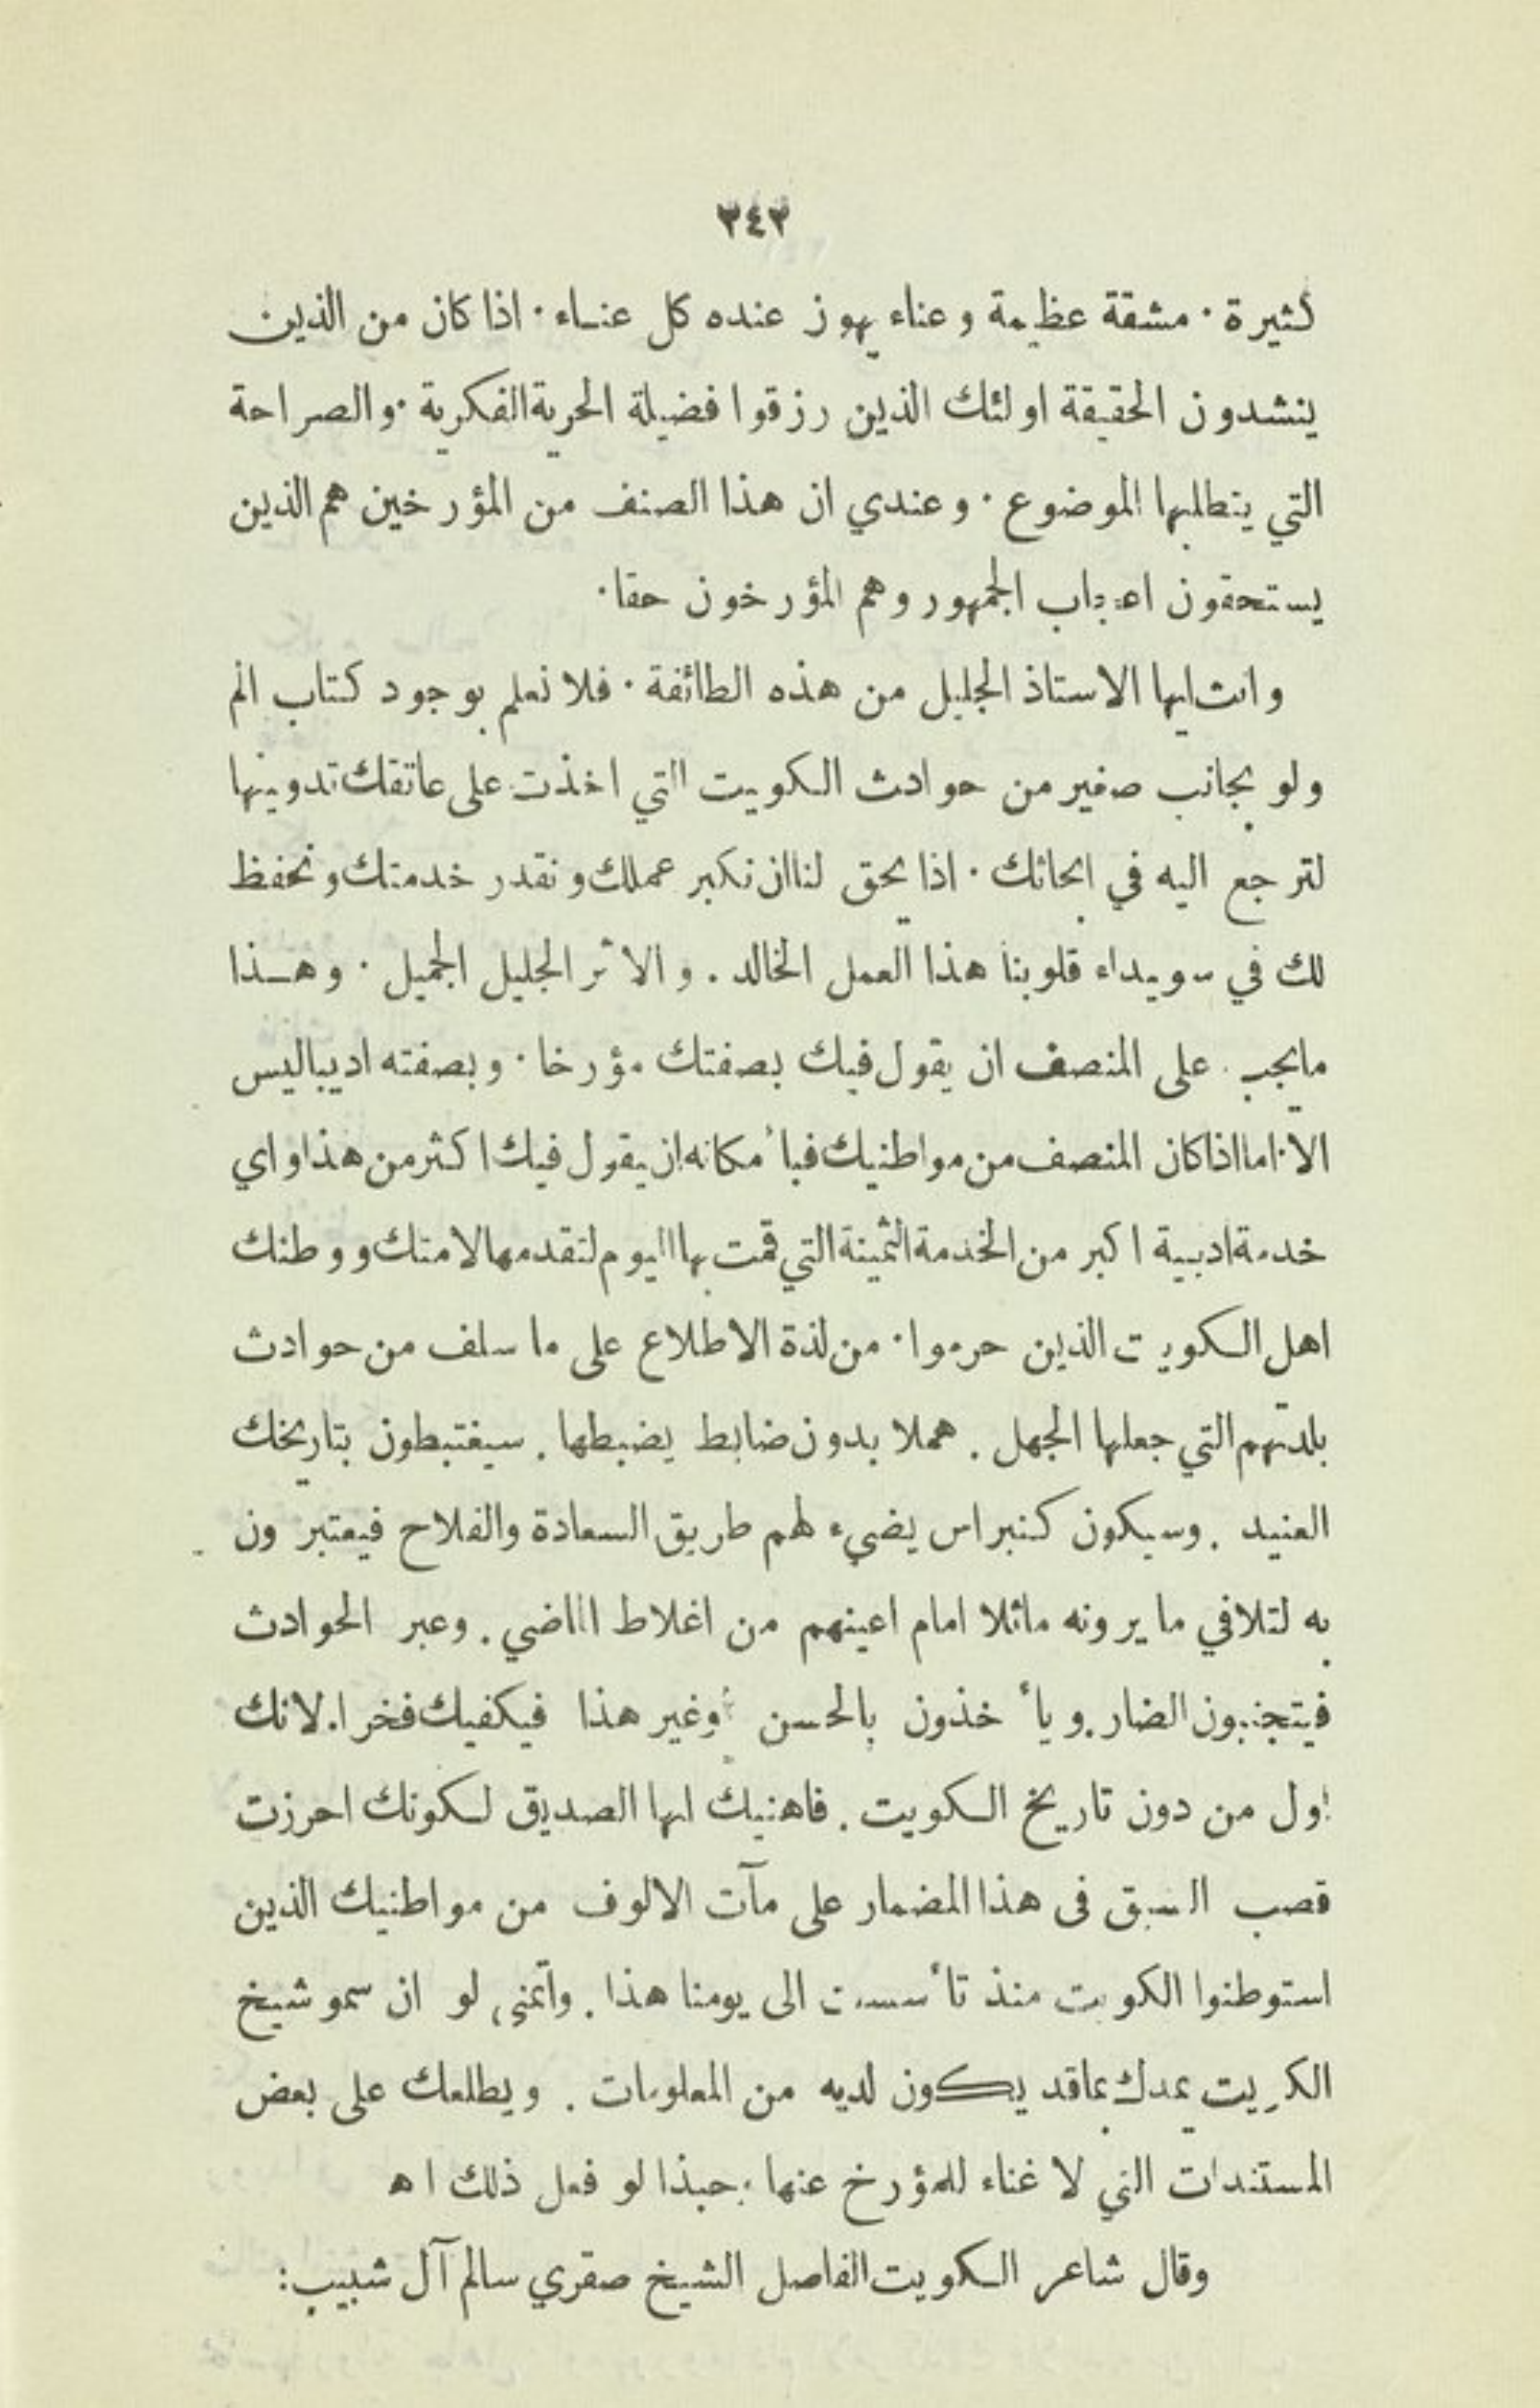 ٣٤٢
كثيرة · مشقة عظيمة وعناء يهون عنده كل عناء · اذا كان من الذين
ينشدون الحقيقة اولئك الذين رزقوا فضيلة الحرية الفكرية · والصراحة
التي يتطلبها الموضوع · وعندي ان هذا الصنف من المؤرخين هم الذين
يستحقون اعجاب الجمهور وهم المؤرخون حقا ·
وانت ايها الاستاذ الجليل من هذه الطائفة · فلا نعلم بوجود كتاب الم
ولو بجانب صغير من حوادث الكويت التي اخذت على عاتقك تدوينها
لترجع اليه في ابحاثك · اذا يحق لنا ان نكبر عملك ونقدر خدمتك ونحفظ
لك في سويداء قلوبنا هذا العمل الخالد . والاثر الجليل الجميل · وهذا
ما يجب على المنصف ان يقول فيك بصفتك مؤرخا · وبصفته اديبا ليس
الا · اما اذا كان المنصف من مواطنيك فبأمكانه ان يقول فيك اكثر من هذا واي
خدمة ادبية اكبر من الخدمة الثمينة التي قمت بها اليوم لتقدمها لامتك ووطنك
اهل الكويت الذين حرموا · من لذة الاطلاع على ما سلف من حوادث
بلدتهم التي جعلها الجهل . هملا بدون ضابط يضبطها . سيغتبطون بتاريخك
العنيد . وسيكون كنبراس يضيء لهم طريق السعادة والفلاح فيعتبرون
به لتلافي ما يرونه ماثلا امام اعينهم من اغلاط الماضي . وعبر الحوادث
فيتجنبون الضار . ويأخذون بالحسن وغير هذا فيكفيك فخرا . لانك
اول من دون تاريخ الكويت . فاهنيك ايها الصديق لكونك احرزت
قصب السبق فى هذا المضمار على مآت الالوف من مواطنيك الذين
استوطنوا الكويت منذ تأسست الى يومنا هذا . واتمنى لو ان سمو شيخ
الكويت يمدك بما قد يكون لديه من المعلومات . ويطلعك على بعض
المستندات التي لا غناء للمؤرخ عنها . حبذا لو فعل ذلك اه
وقال شاعر الكويت الفاصل الشيخ صقري سالم آل شبيب :